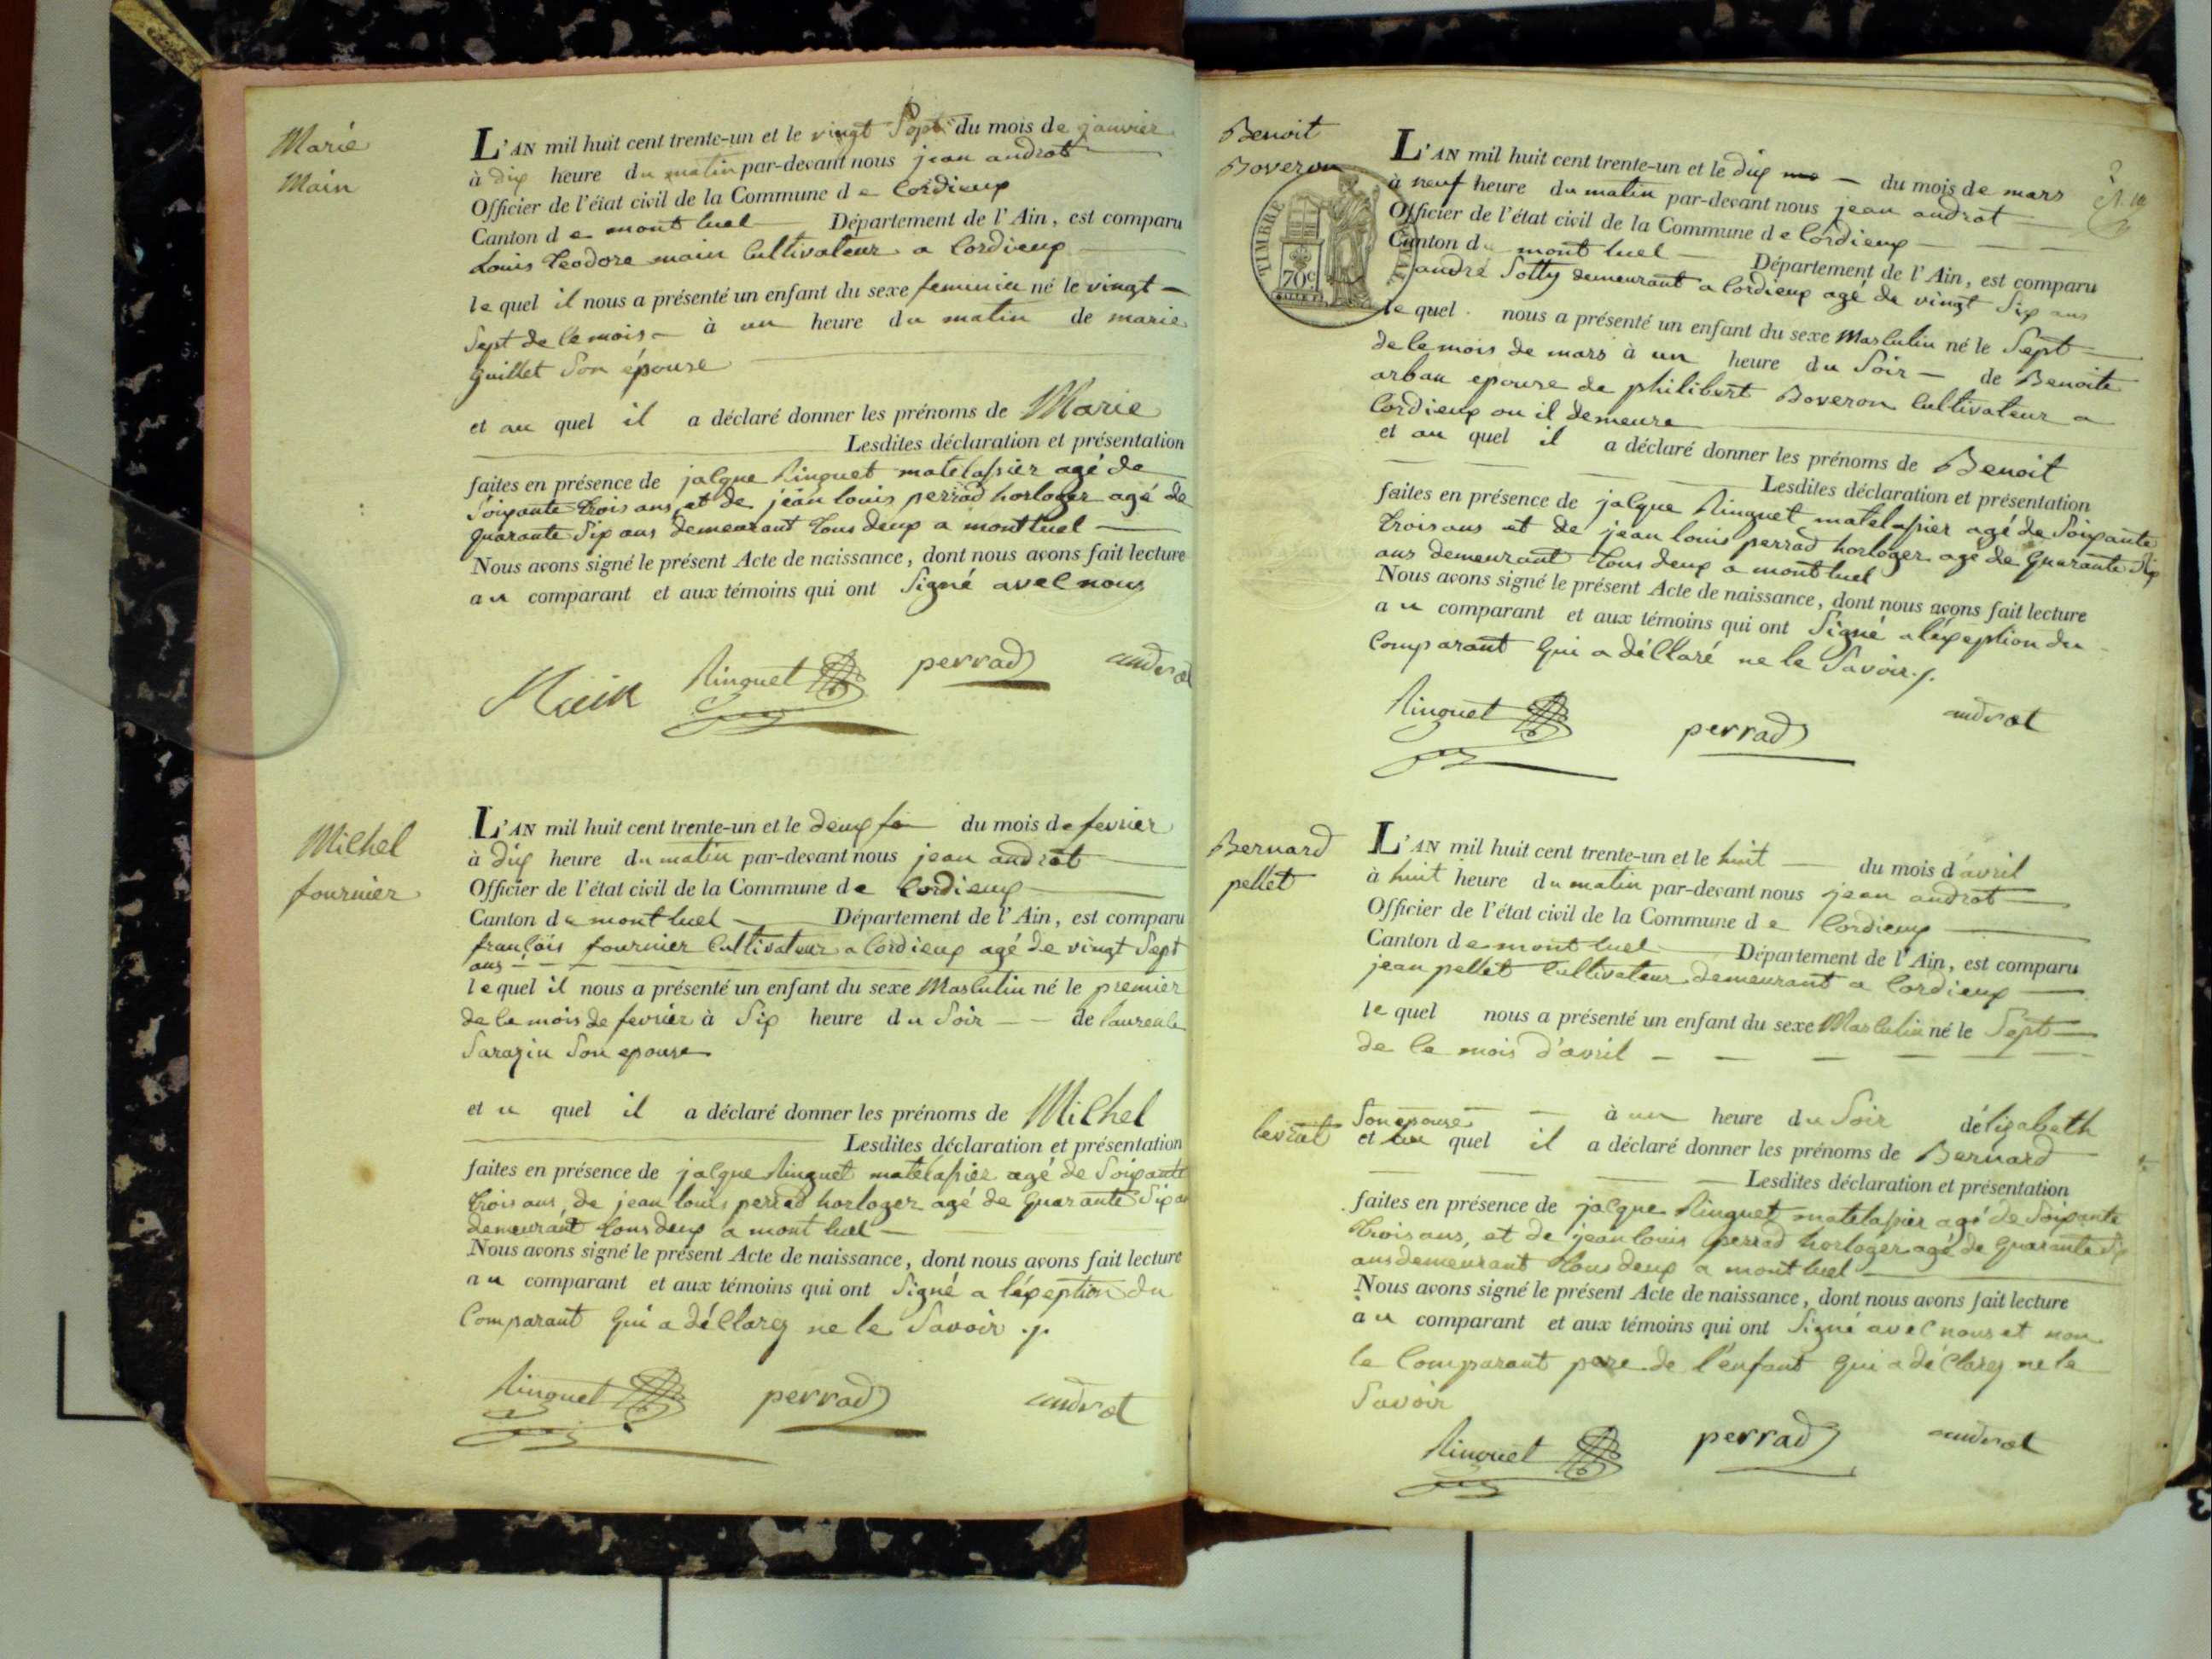 Marie
Main
L'AN mil huit cent trente-un et le vingt Sept du mois de janvier
à dix heure du matin par-devant nous jean androt
Officier de l'état civil de la Commune de Cordieux
Canton de mont luel Département de l'Ain, est comparu
Louis Teodore main Cultivateur a Cordieux
le quel il nous a présenté un enfant du sexe feminin né le vingt
Sept de ce mois à un heure du matin de marie
guillet Son épouse
et au quel il a déclaré donner les prénoms de Marie
Lesdites déclaration et présentation
faites en présence de jacque Ringuet matelassier agé de
Soixante trois ans et de jean louis perrad horloger agé de
quarante Six ans demeurant tous deux a montluel
Nous avons signé le présent Acte de naissance, dont nous avons fait lecture
au comparant et aux témoins qui ont Signé avec nous
Main Ringuet perrad androt
Michel
fournier
L'AN mil huit cent trente-un et le deux du mois de fevrier
à dix heure du matin par-devant nous jean androt
Officier de l'état civil de la Commune de Cordieux
Canton de mont luel Département de l'Ain, est comparu
françois fournier Cultivateur a Cordieux agé de vingt Sept
ans
le quel il nous a présenté un enfant du sexe Masculin né le premier
de ce mois de fevrier à Six heure du Soir de laurence
Sarazin Son epouse
et u quel il a déclaré donner les prénoms de Michel
Lesdites déclaration et présentation
faites en présence de jacque Ringuet matelassier agé de Soixante
trois ans, de jean louis perrad horloger agé de quarante Six an
demeurant tous deux a mont luel
Nous avons signé le présent Acte de naissance, dont nous avons fait lecture
au comparant et aux témoins qui ont Signé a l'éxception du
Comparant qui a déClarez ne le Savoir ./.
Ringuet perrad androt
Benoit
Boveron
TIMBRE ROYAL
70c
L'AN mil huit cent trente-un et le dix du mois de mars
à neuf heure du matin par-devant nous jean androt
Officier de l'état civil de la Commune de Cordieux
Canton de mont luel Département de l'Ain, est comparu
andré Sotty demeurant a Cordieux agé de vingt Six ans
le quel nous a présenté un enfant du sexe Masculin né le Sept
de ce mois de mars à un heure du Soir de Benoite
arban epouse de philibert Boveron Cultivateur a
Cordieux ou il demeure
et au quel il a déclaré donner les prénoms de Benoit
Lesdites déclaration et présentation
faites en présence de jacque Ringuet matelassier agé de Soixante
trois ans et de jean louis perrad horloger agé de quarante Six
ans demeurant tous deux a mont luel
Nous avons signé le présent Acte de naissance, dont nous avons fait lecture
au comparant et aux témoins qui ont Signé a léxception du
Comparant qui a déClaré ne le Savoir ./.
Ringuet perrad androt
Bernard
pellet
L'AN mil huit cent trente-un et le huit du mois d'avril
à huit heure du matin par-devant nous jean androt
Officier de l'état civil de la Commune de Cordieux
Canton de mont luel Département de l'Ain, est comparu
jean pellet Cultivateur demeurant a Cordieux
le quel nous a présenté un enfant du sexe Masculin né le Sept
de ce mois d'avril
à un heure du Soir d'élizabeth
levrat Son epouse
et au quel il a déclaré donner les prénoms de Bernard
Lesdites déclaration et présentation
faites en présence de jacque Ringuet matelassier agé de Soixante
trois ans, et de jean louis perrad horloger agé de quarante Six
ans demeurant tous deux a mont luel
Nous avons signé le présent Acte de naissance, dont nous avons fait lecture
au comparant et aux témoins qui ont Signé avec nous et non
le Comparant pere de l'enfant qui a déClarez ne le
Savoir
Ringuet perrad androt